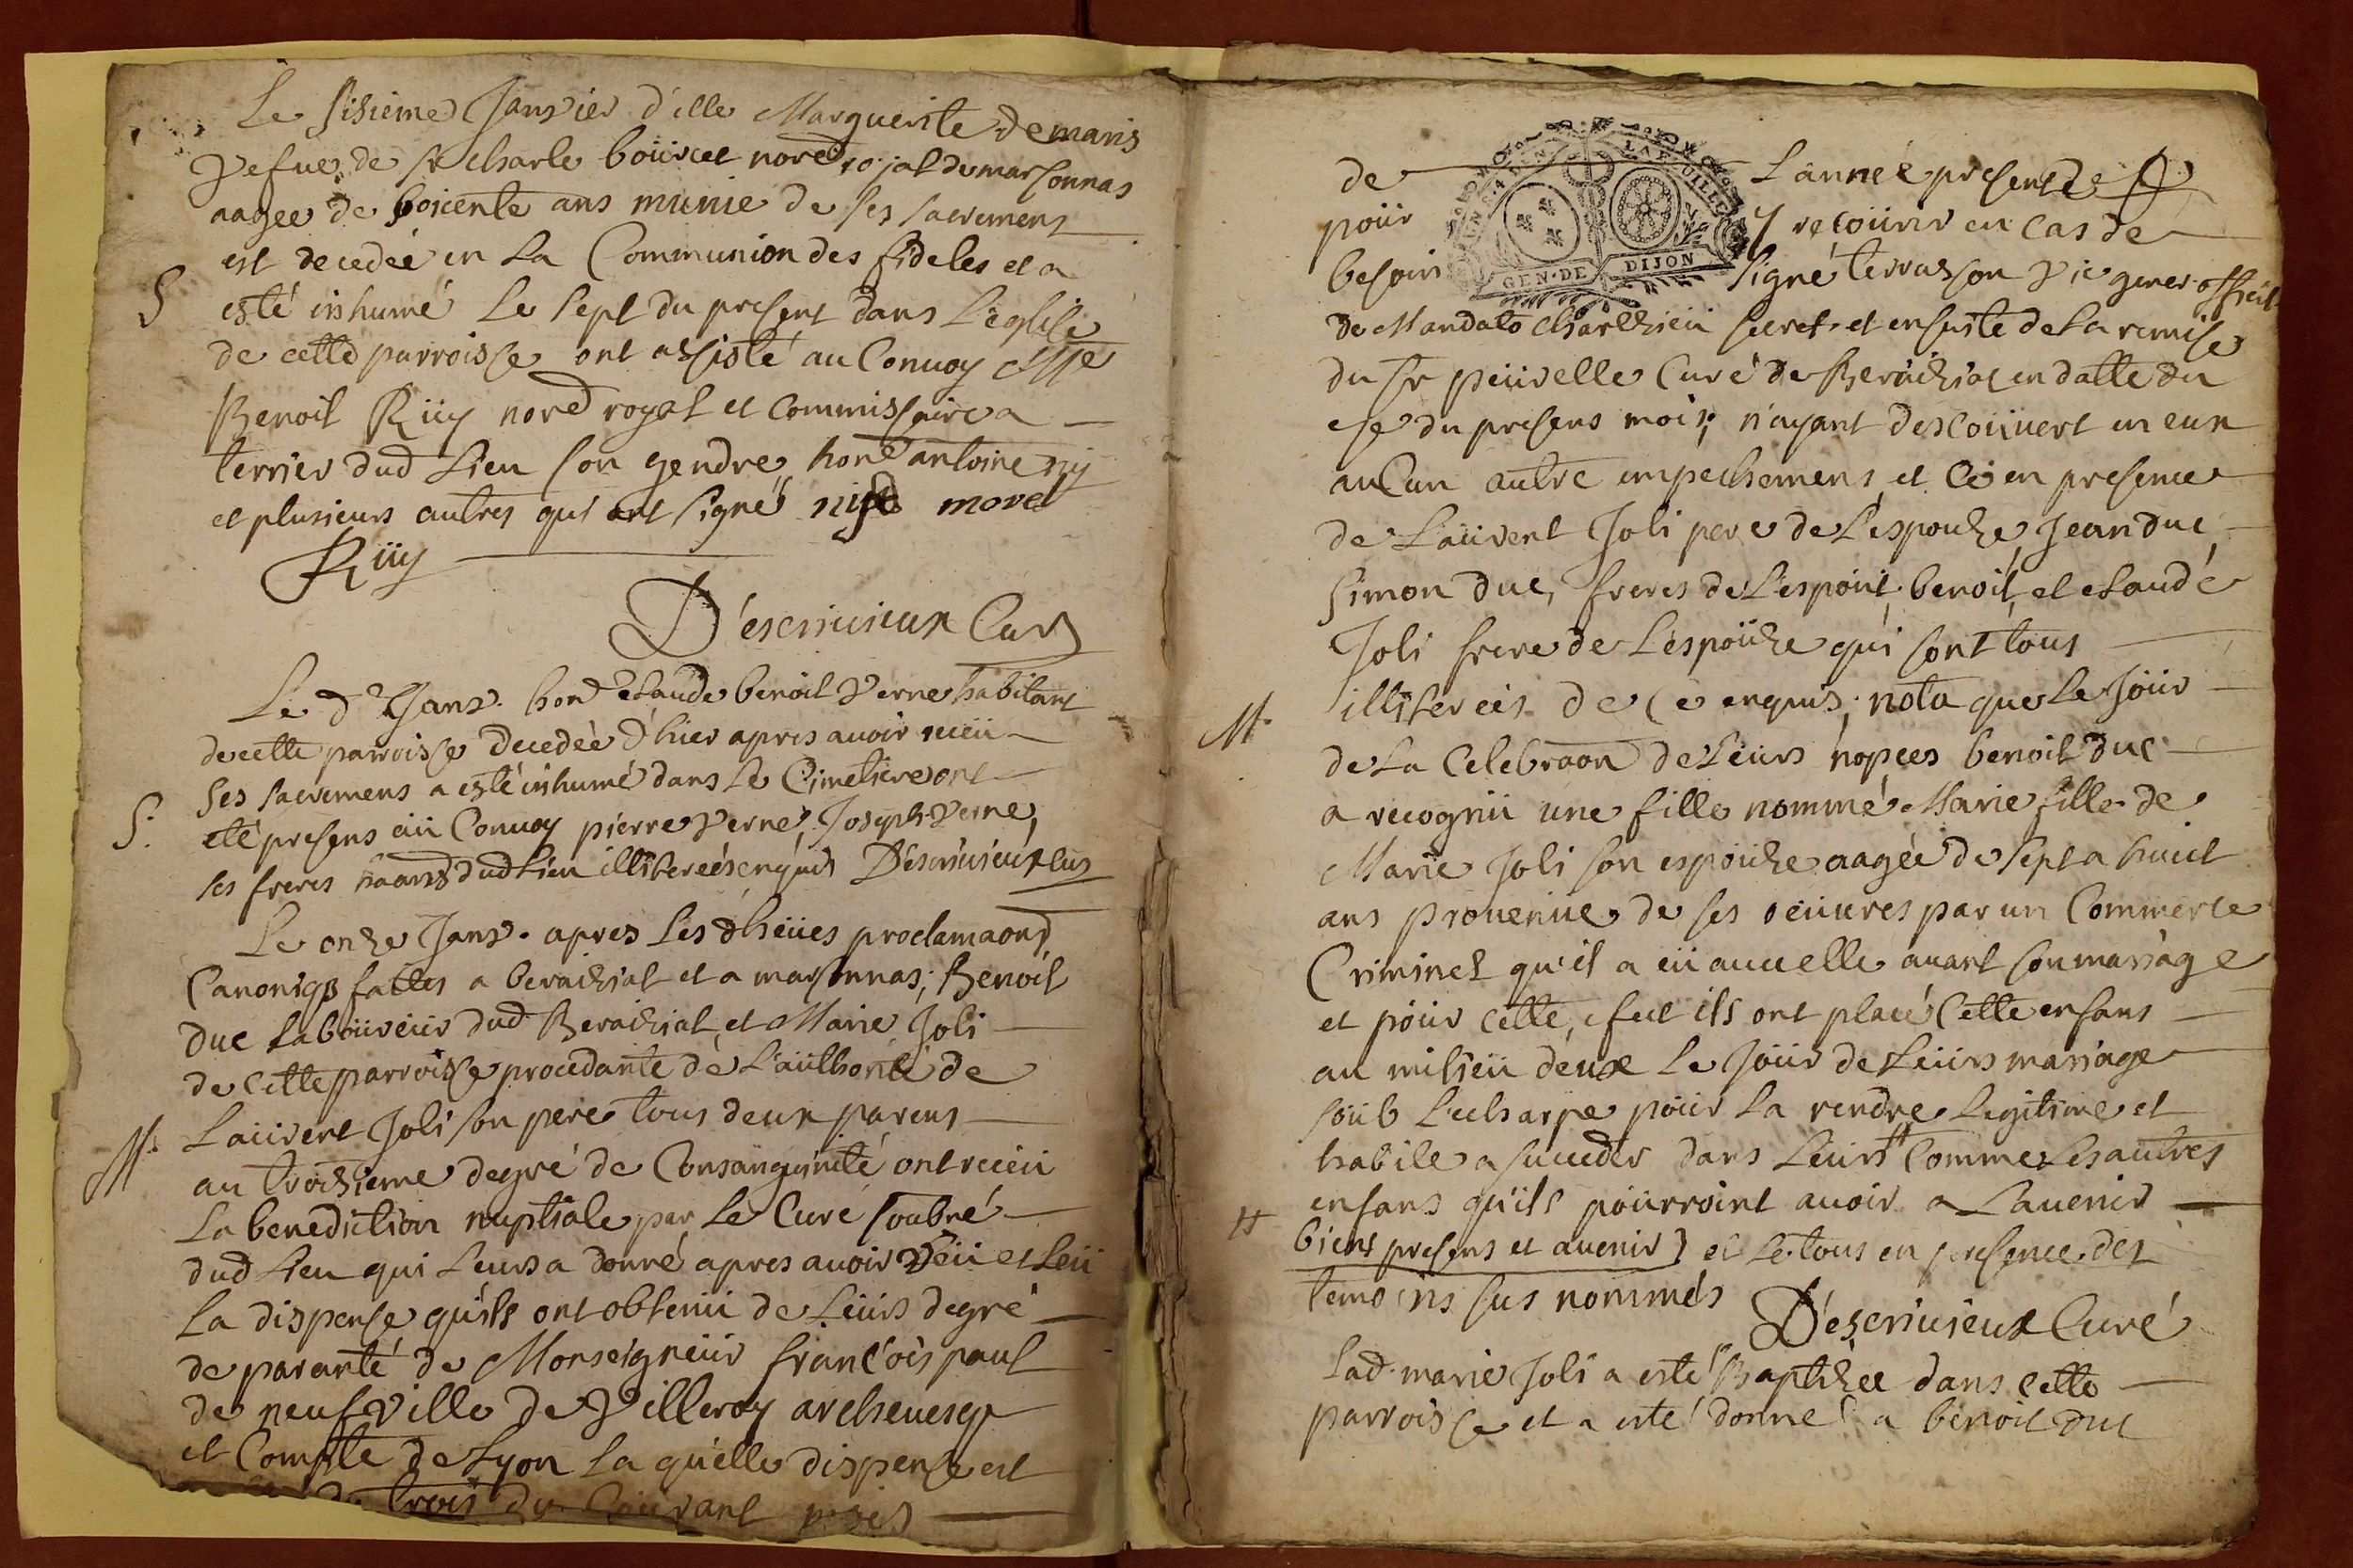 Le sisieme Janvier d'elle Marguerite demaris
Vefue de sr Charle bourcet nore royal de marsonnas
aagée de soicente ans munie de ses sacremens
est decedée en La Communion des fideles et a
S esté inhumé Le sept du present dans L'eglise
de cette parroisse ont assisté au Conuoy
Benoit Ruy nore royal et Commissaire a
terrier dud Lieu son gendre, hon antoine
et plusieurs autres qui ont signé morel
Ruy
D'escriuieux Curé
Le d Janv. hon Claude benoit Verne habitant
de cette parroisse decedée d'hier apres auoir receu
ses sacremens a esté inhumé dans Le Cimetiere ont
S. eté presens au Conuoy pierre Verne, Joseph Verne,
ses freres dud Lieu illiterées enquis D'escriuieux
Le onze Janv. apres Les dheues proclamaons
Canoniqs faittes a beraiziat et a marsonnas; Benoit
Duc Laboureur dud Beraiziat et Marie Joli
de cette parroisse procedante de L'authorité de
M. Laurent Joli son pere tous deux parens
au troizieme degré de Consanguinité ont receu
La benediction nuptiale par Le Curé soubné
dud Lieu qui Leurs a donné apres auoir Veu et Leu
La dispense qu'ils ont obtenu de Leurs degré
de paranté de Monseigneur françois paul
de neufville de Villeroy archeuesq
et Compte de Lyon La quelle dispense est
du trois du Courant mois
de L'année presente
pour y recourir en cas de
besoin signé terrasson Vic gener. official
GEN·DE DIJON
de Mandato Charlhieu secret. et ensuite de La remise
du sr peuvelle Curé de Beraiziat en datte du
du presens mois; n'ayant descouuert en eux
auCun autre empechemens et Ce en presence
de Laurent Joli pere de L'espouze, Jean duc
simon duc, freres de L'espoux, benoit, et claude
Joli frere de L'espouze qui sont tous
illiterées de Ce enquis; nota que Le Jour
M. de La Celebraon de Leurs nopces benoit duc
a recognu une fille nommé Marie fille de
Marie Joli son espouze aagée de sept a huict
ans prouenue de ses oeuures par un Commerce
Criminel qu'il a eu auec elle auant son mariage
et pour cette efect ils ont placé Cette enfans
au milieu d'eux Le Jour de Leurs mariage
soub L'echarpe pour La rendre Legitime et
habile a succeder dans Leurs # Comme Les autres
enfans qu'ils pourroint auoir a L'auenir
# biens presens et auenir) et Le tous en presence des
temoins sus nommés D'escriuieux Curé
Lad. marie Joli a esté Baptizée dans cette
parroisse et a esté donné a benoit Duc